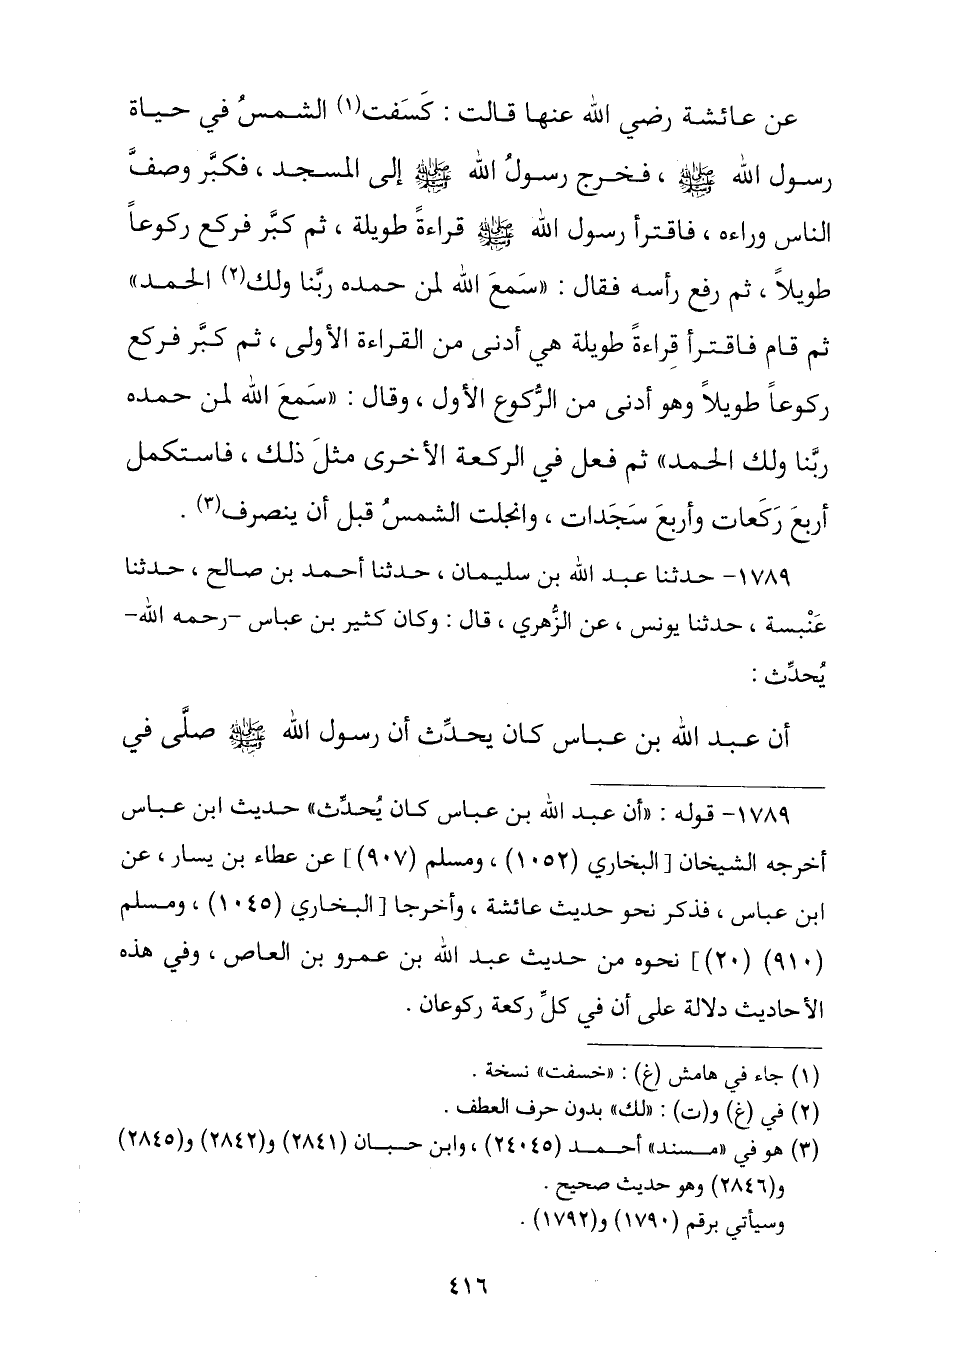 عن عائشة رضي الله عنها قالت : كَسَفت(١) الشمسُ في حياة
رسول الله ﷺ ، فخرج رسولُ الله ﷺ إلى المسجد ، فكبَّر وصفَّ
الناس وراءه ، فاقترأ رسول الله ﷺ قراءةً طويلة ، ثم كبَّر فركع ركوعاً
طويلاً ، ثم رفع رأسه فقال : «سَمعَ الله لمن حمده ربَّنا ولك(٢) الحمد»
ثم قام فاقترأ قراءةً طويلة هي أدنى من القراءة الأولى ، ثم كبَّر فركع
ركوعاً طويلاً وهو أدنى من الرُّكوع الأول ، وقال : «سَمعَ الله لمن حمده
ربَّنا ولك الحمد» ثم فعل في الركعة الأخرى مثلَ ذلك ، فاستكمل
أربعَ رَكَعات وأربعَ سَجَدات ، وانجلت الشمسُ قبل أن ينصرف(٣) .
١٧٨٩- حدثنا عبد الله بن سليمان ، حدثنا أحمد بن صالح ، حدثنا
عَنْبسة ، حدثنا يونس ، عن الزُّهري ، قال : وكان كثير بن عباس -رحمه الله-
يُحدِّث :
أن عبد الله بن عباس كان يحدِّث أن رسول الله ﷺ صلَّى في
١٧٨٩- قوله : «أن عبد الله بن عباس كان يُحدِّث» حديث ابن عباس
أخرجه الشيخان [البخاري (١٠٥٢) ، ومسلم (٩٠٧)] عن عطاء بن يسار ، عن
ابن عباس ، فذكر نحو حديث عائشة ، وأخرجا [البخاري (١٠٤٥) ، ومسلم
(٩١٠) (٢٠)] نحوه من حديث عبد الله بن عمرو بن العاص ، وفي هذه
الأحاديث دلالة على أن في كلِّ ركعة ركوعان .
(١) جاء في هامش (غ) : «خسفت» نسخة .
(٢) في (غ) و(ت) : «لك» بدون حرف العطف .
(٣) هو في «مسند» أحمد (٢٤٠٤٥) ، وابن حبان (٢٨٤١) و(٢٨٤٢) و(٢٨٤٥)
و(٢٨٤٦) وهو حديث صحيح .
وسيأتي برقم (١٧٩٠) و(١٧٩٢) .
٤١٦